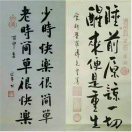 睡前原諒一切
醒來便是重生
少時快樂很簡單
老時簡單很快樂